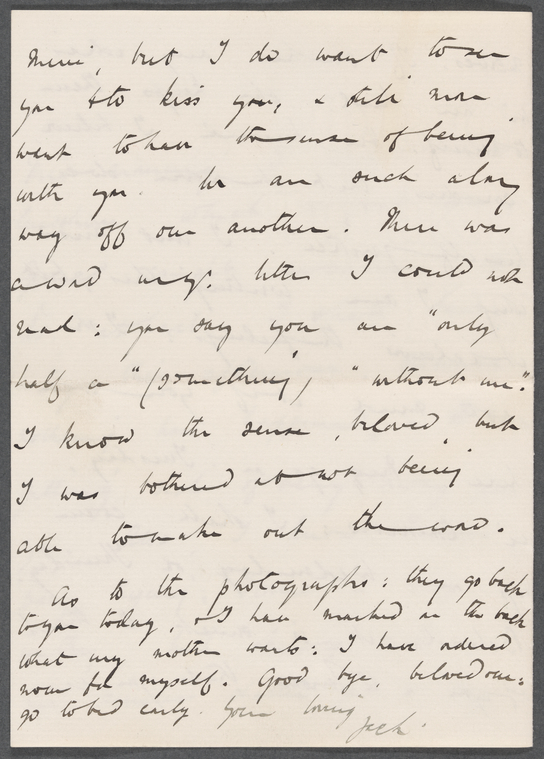 mine, but I do want to see
you & to kiss you, & still more
want to have the sense of being
with you. We are such a long
way off one another. There was
a word in yr. letter I could not
read: you say you are "only
half a" (something) "without me".
I know the sense, beloved, but
I was bothered at not being
able to make out the word.
As to the photographs: they go back
to you today, & I have marked on the back
what my mother wants: I have ordered
none for myself. Good bye, beloved one:
go to bed early. Your loving
Jack.